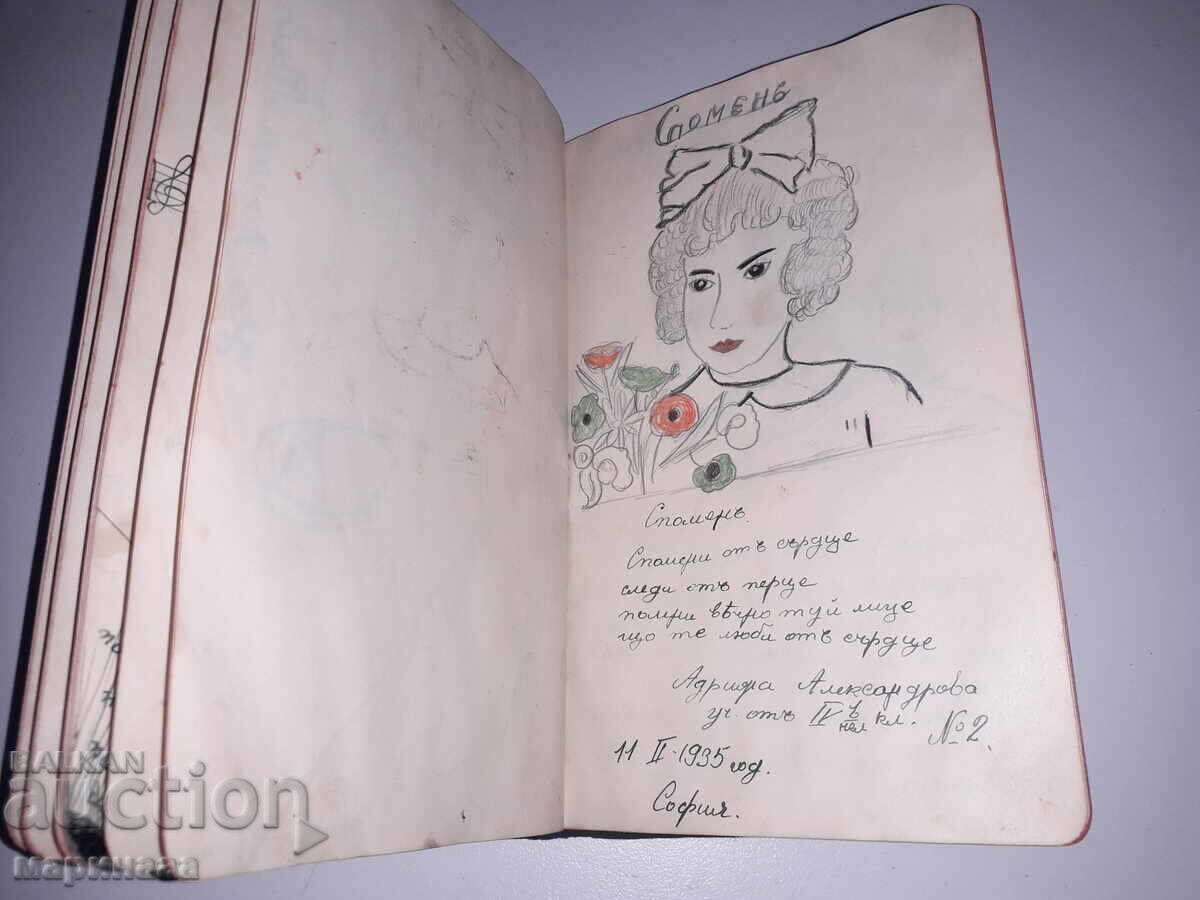 СПОМЕНЪ
Споменъ.
Спомени отъ сърдце
следи отъ перце
помни вѣчно туй лице
що те люби отъ сърдце
Адрияна Александрова
уч. отъ IV ъ нел кл. №2.
11 II·1935 год.
София.
BALKAN
auction
Маринааа